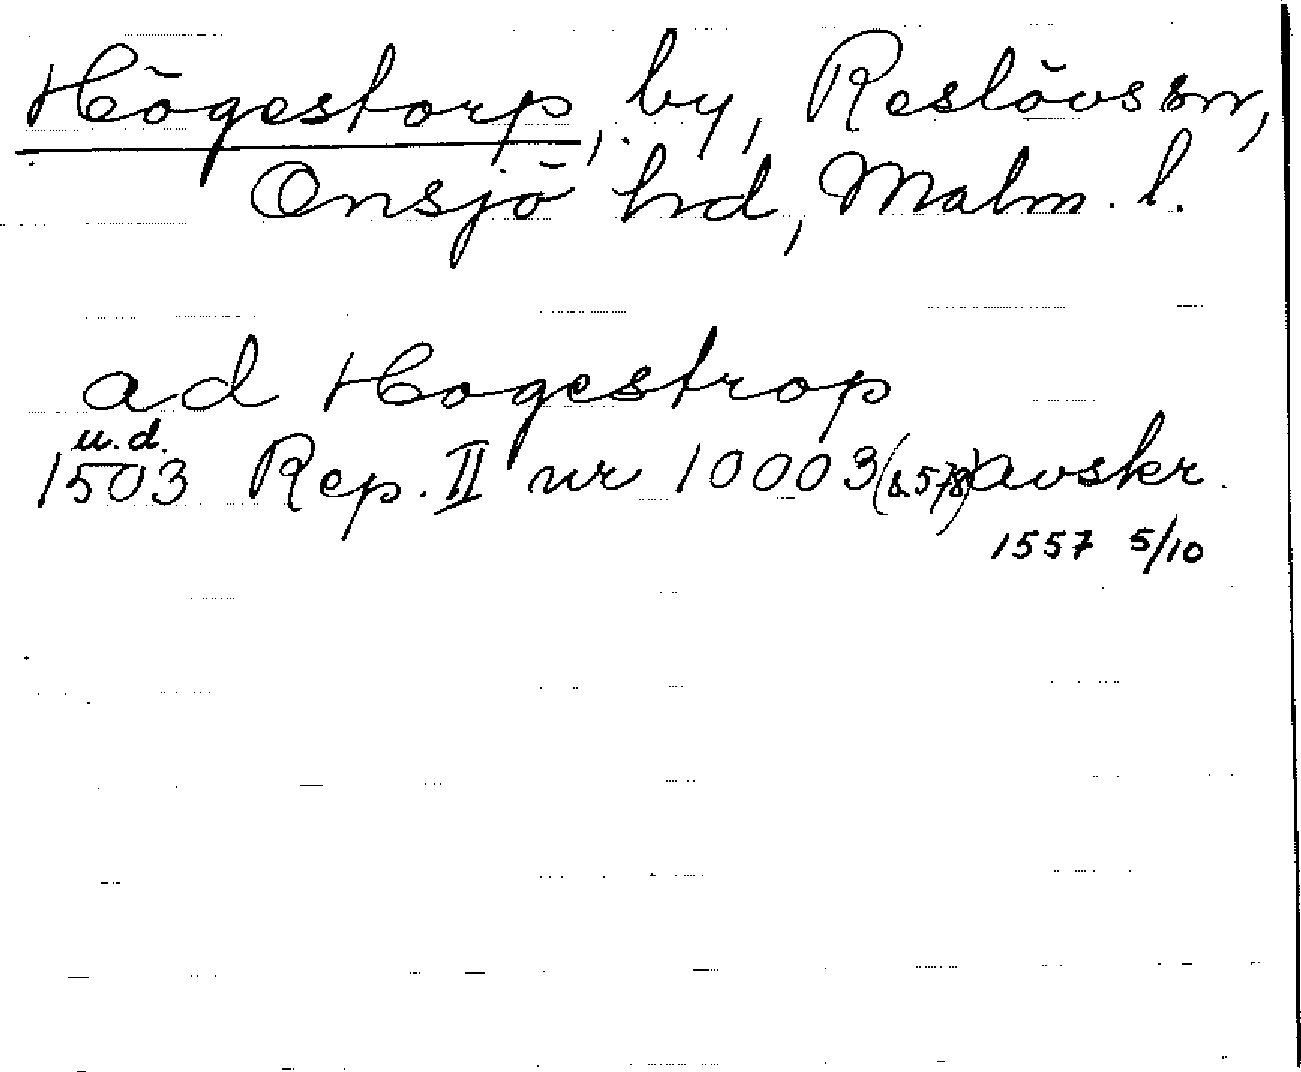 Högestorp, by, Reslövs sn,
Onsjö hd, Malm. l.
ad Hogestrop
u.d.
1503 Rep. II nr 10003 (s. 578) avskr.
1557 5/10